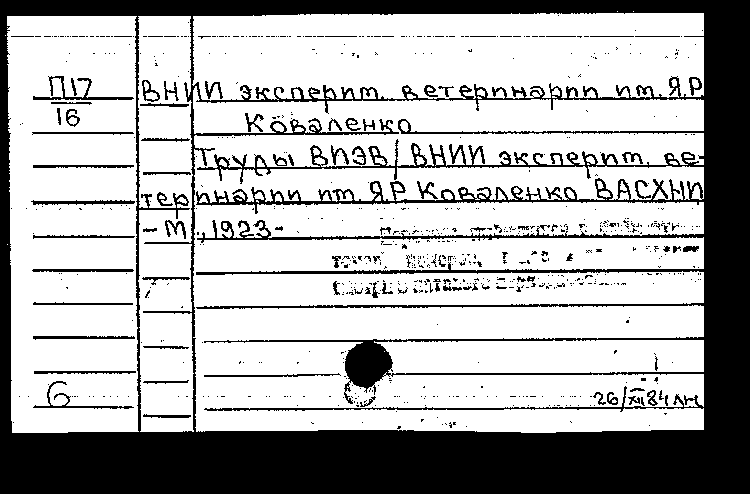 П17
16
ВНИИ эксперим. ветеринарии им. Я.Р.
Коваленко
Труды ВИЭВ / ВНИИ эксперим. ве-
теринарии им. Я Р Коваленко ВАСХНИ
- М., 1923-
6
26/XII 84 лн